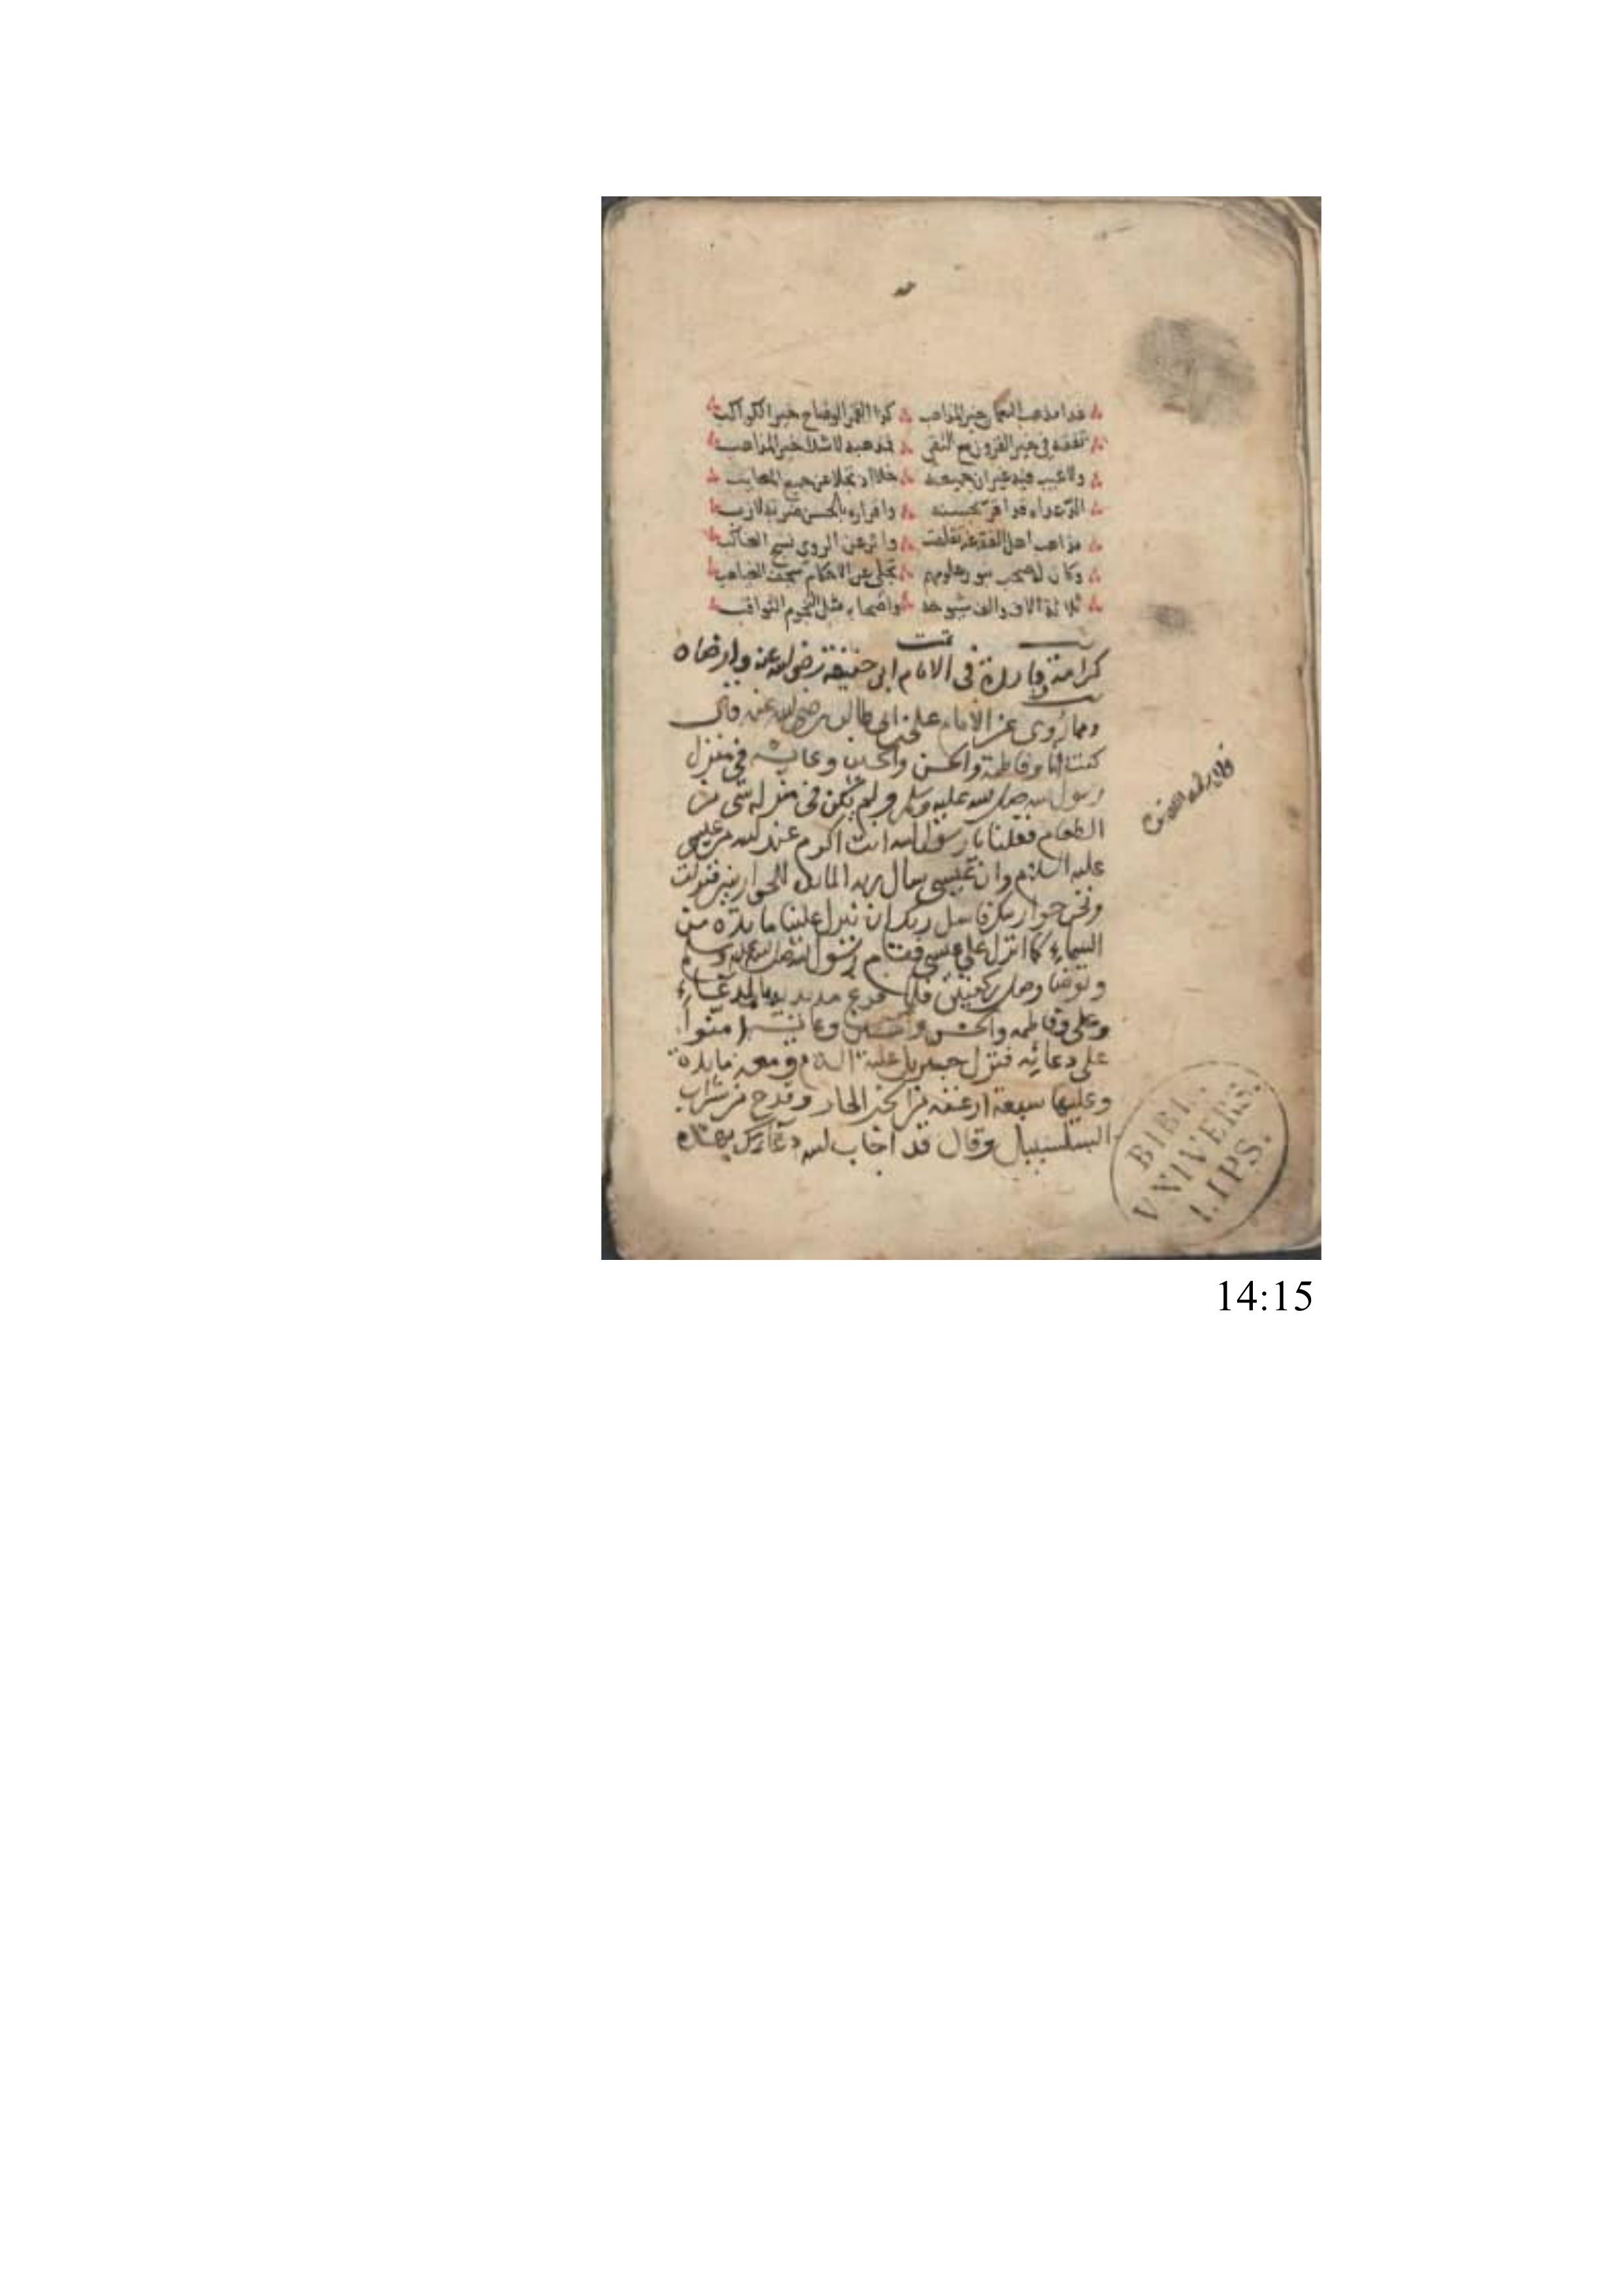 غدا مذهب النعمان خير المذاهب كذا القمر الوضاح خير الكواكب
تفقه في خير القرون مع التقى فمذهبه لاشك خير المذاهب
ولا عيب فيه غير ان جميعه خلا اذ تخلا عن جميع المعايب
مذاهب اهل الفقه عنه تقلصت
ثلاثة الاف والف شيوخه واصحابه مثل النجوم الثواقب
تمت
كرامة واردة في الامام ابي حنيفة رضي الله عنه وارضاه
ومما روى عن الامام علي بن ابي طالب رضي الله عنه قال
كنت انا وفاطمة والحسن والحسين وعايشه في منزل
رسول الله صلى الله عليه وسلم ولم يكن في منزله شي من
الطعام فقلنا يا رسول الله انت اكرم عند الله من عيسى
عليه السلام وان عيسى سال ربه المايده للحواريين فنزلت
ونحن حواريك فاسل ربك ان ينزل علينا مايدة من
السماء كما انزل على عيسى فقام رسول الله صلى الله عليه وسلم
وتوضا وصلى ركعتين فلما فرغ مد يديه بالدعاء
وعلي وفاطمه والحسن والحسين وعايشه امنوا
على دعائه فنزل جبريل عليه السلام ومعه مايدة
وعليها سبعة ارغفه من الخبز الحار وقدح من شراب
السلسبيل وقال قد اجاب الله دعآئك بهذه
BIBL.
VNIVERS.
LIPS.
14:15